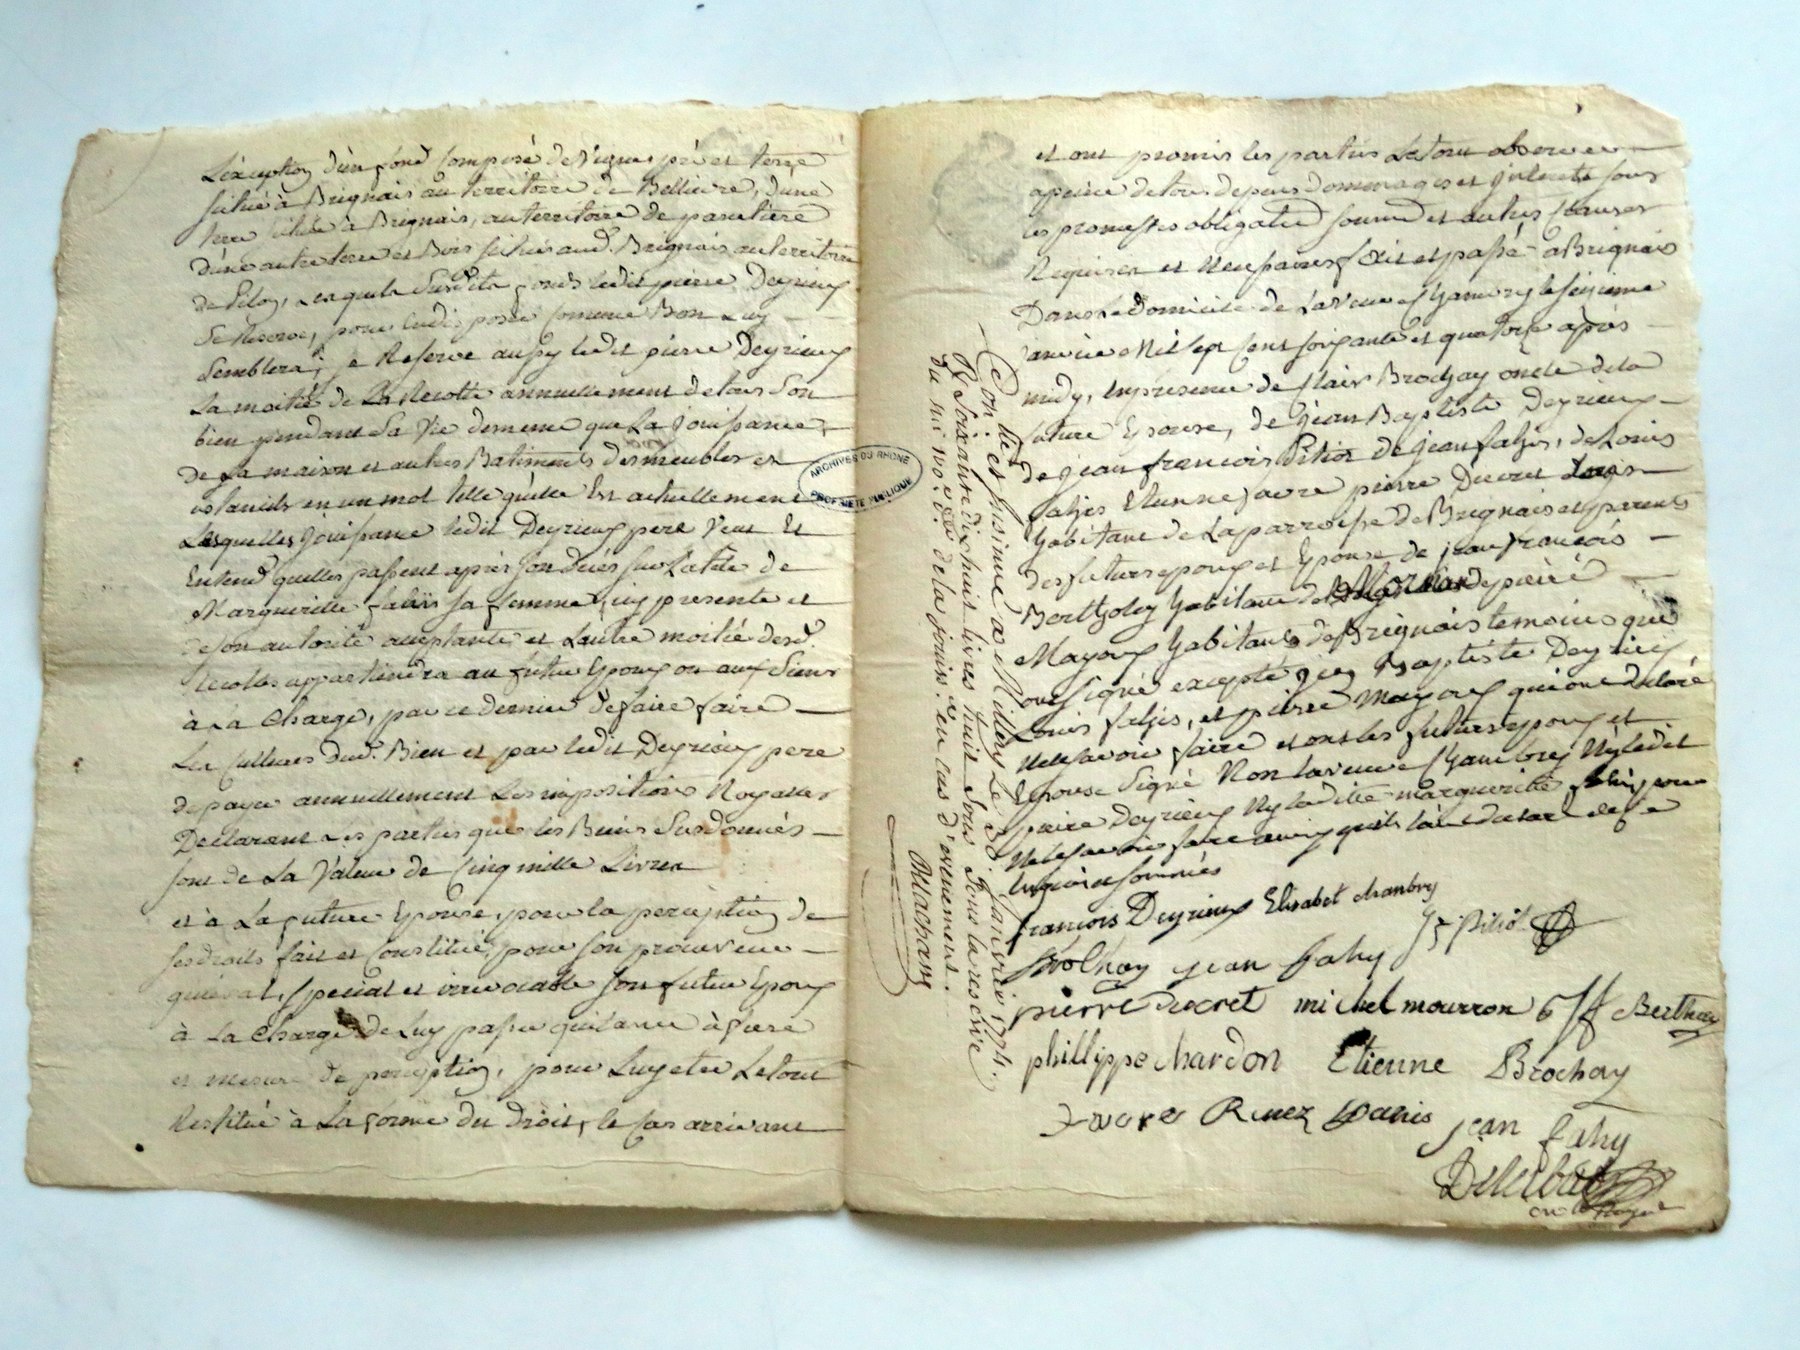 L'exception d'un fond Composé de Vigne, pré et terre
située à Brignais au territoire de Bellievre, d'une
terre située à Brignais, au territoire de
d'une autre terre et Bois situés aud. Brignais au territoire
de Piloy, Lesquels Susdits fonds ledit pierre Deyrieux
Se Reserve, pour en disposer Comme Bon Luy
Semblera; se Reserve aussy ledit pierre Deyrieux
La moitié de La Recolte annuellement de tous Son
bien pendant Sa Vie de meme que La Jouissance
de Sa maison et autres Batiments des meubles et
en un mot telle qu'elle Est actuellement
Lesquelles Jouissance ledit Deyrieux pere Veut Et
Entend quelles passent après son décés sur La tête de
Marguerite fahis sa femme, icy presente et
de son autorité acceptante et L'autre moitié desd.
recoltes appartiendra au futur Epoux ou aux Siens
à La Charge, par ce dernier de faire faire
Les Cultures dud. Bien et par ledit Deyrieux pere
de payer annuellement Les impositions Royalles
Declarant Les parties que les Biens Susdonnés
sont de La Valeur de Cinq mille Livres
et à La future Epouse, pour la perception de
ses droits fait et Constitué, pour son procureur
général, special et irrevocable son futur Epoux
à La Charge de Luy passer quitance à fure
et mesure de perception, pour Luy etre Le tout
Restitué à La forme du Droit, le Cas arrivant
ARCHIVES DU RHONE
PROPRIETE PUBLIQUE
et ont promis les parties Le tout observer
a peine de tous depens Dommages et Interets sous
les promesses obligations soumis et autres Clauses
Requises et Necessaires, fait et passé a Brignais
Dans Le Domicile de La Veuve Chambry le seizieme
janvier Mil sept Cent soixante et quatorze après
midy, En presence de Clair Brochay oncle de la
future Epouse, de Jean Baptiste Deyrieux
de Jean francois Pitiot de Jean fahis, de Louis
fahis Etienne favre pierre Ducret
habitant de La parroisse de Brignais et parents
des futurs epoux et Epouse de Jean francois
Bertholey habitant de Mornan de pierre
Mayoux habitants de Brignais temoins que
ont signé excepté Jean Baptiste Deyrieux
Louis fahis, et pierre Mayoux qui ont declaré
Ne le savoir faire et ont les futurs epoux et
Epouse Signé Non La veuve Chambry Ny ledit
pierre Deyrieux Ny La ditte marguerite fahis pour
Ne le savoir faire ainsi qu'ils L'ont declaré de ce
Enquis et sommés
francois Deyrieux Elisabet chambry
J f Pitiot
Brochay jean fahy
pierre ducret michel mourron Bertholey
phillippe chardon Etienne Brochay
favre Danis
jean fahy
Controllé et Insinué a Millery Le 30. Janvier 1774.
R. Soixante dix huit livres huit Sous Sous la reserve
du de la jouiss. en cas d'evenement.